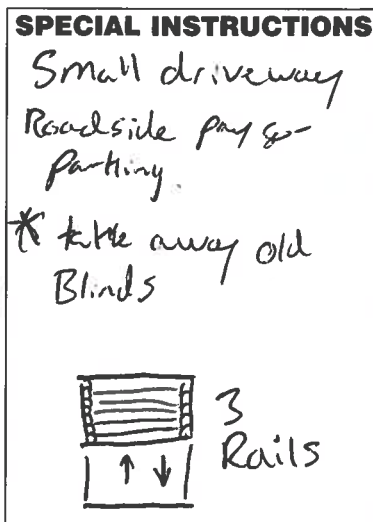 SPECIAL INSTRUCTIONS
Small driveway
Roadside pay
parking
* take away old
Blinds
3
Rails